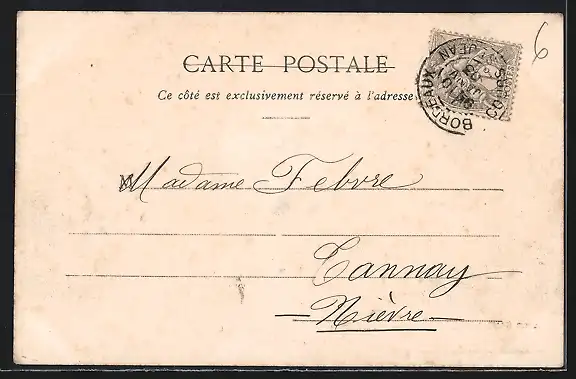 6
CARTE POSTALE
Ce côté est exclusivement réservé à l'adresse
BORDEAUX ST JEAN
Madame Febvre
Tannay
Nièvre